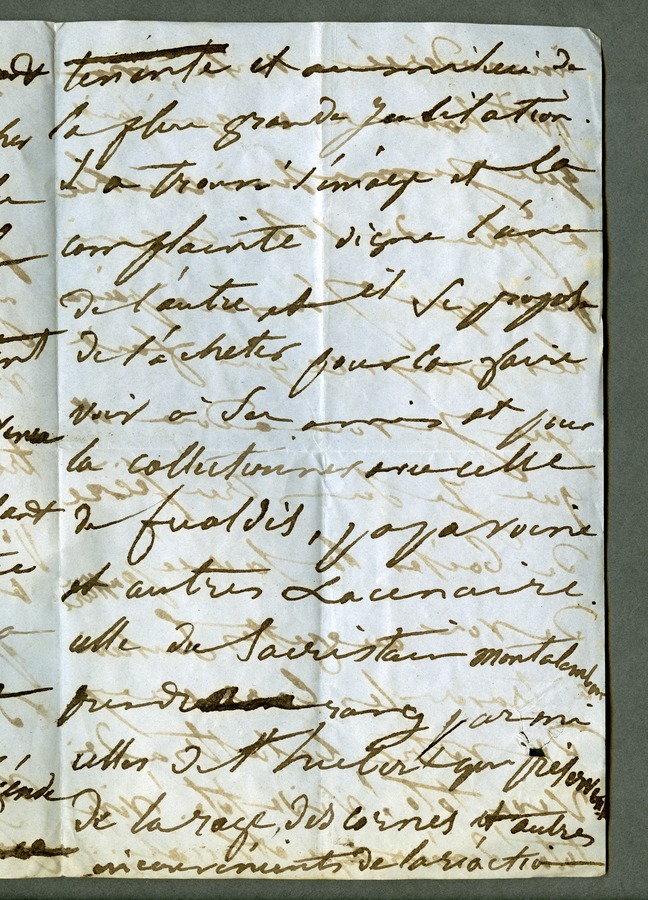 tenante et au milieu de
la plus grande jubilation.
Il a trouvé l'image et la
complainte digne l'une
de l'autre et il se propose
de l'acheter pour la faire
voir à ses amis et pour
la collectionner avec celle
de fualdis, papavoine
et autres Lacenaire.
celle du Sacristain montalembert
prendra rang parmi
celles de St hubert qui préservent
de la rage, des cornes et autres
inconvénients de la réaction